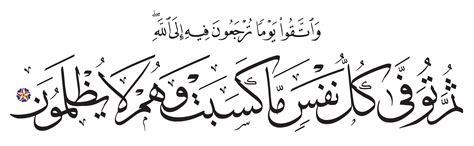 وَٱتَّقُوا۟ يَوْمًا تُرْجَعُونَ فِيهِ إِلَى ٱللَّهِ ۖ
ثُمَّ تُوَفَّىٰ كُلُّ نَفْسٍ مَّا كَسَبَتْ وَهُمْ لَا يُظْلَمُونَ